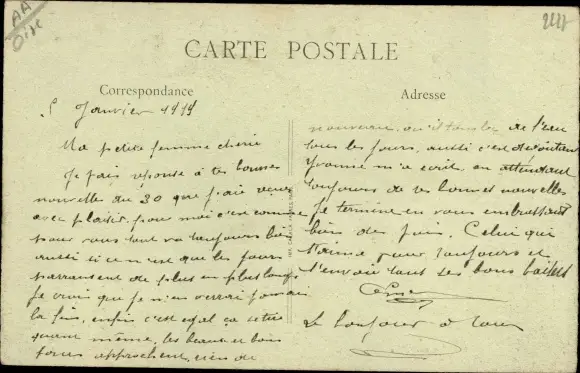 AA
Oise
CARTE POSTALE
Correspondance
Adresse
5 Janvier 1919
Ma petite femme chérie
Je fais réponse à tes bonnes
nouvelles du 30 que j'ai reçu
avec plaisir, pour moi c'est comme
pour vous tout va toujours bien
aussi si ce n'est que les jours
paraissent de plus en plus longs
Je crois que je n'en verrai jamais
la fin, enfin c'est égal ça
quand même, les beaux et bons
jours approchent, rien de
nouveau, qu'il tombe de l'eau
tous les jours, aussi c'est
Yvonne m'a écrit, en attendant
toujours de vos bonnes nouvelles
Je termine en vous embrassant
bien des fois. Celui qui
t'aime pour toujours et
t'envoie tout ses bons baisers
Le bonjour à tous